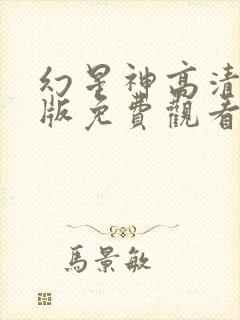 幻星神高清
版免費觀看
馬景敏